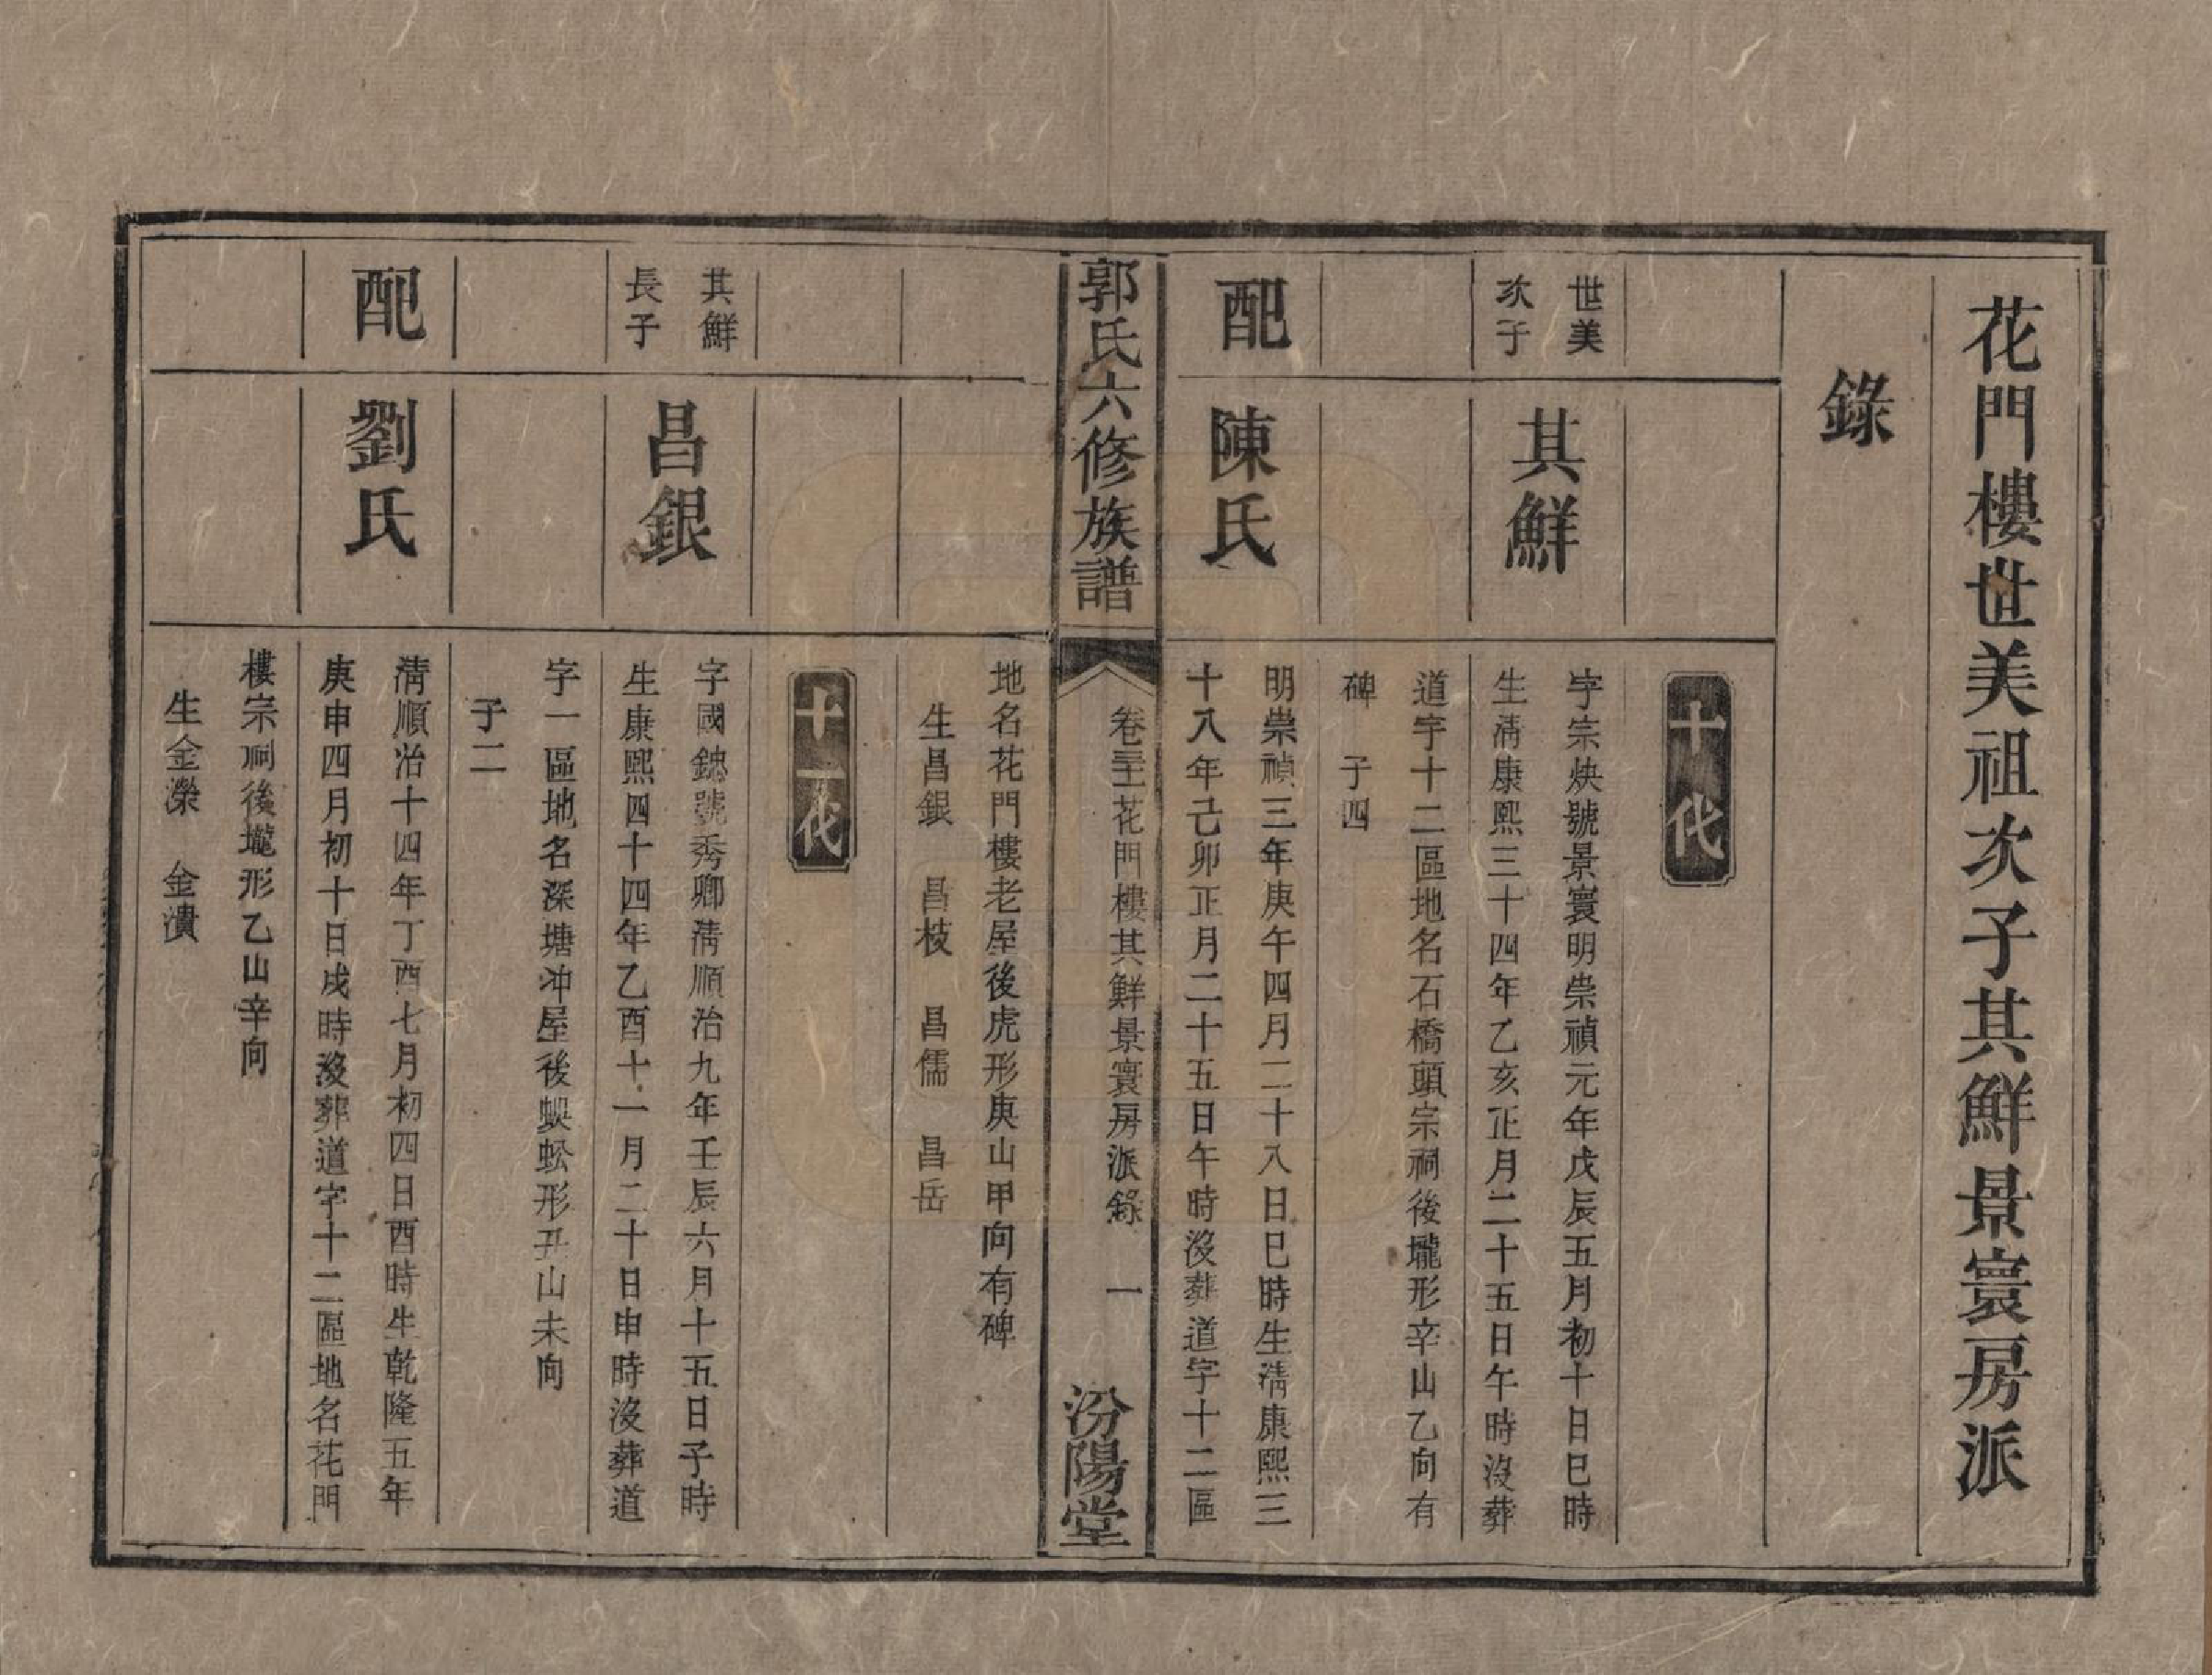 花門樓世美祖次子其鮮景寰房派
錄
十代
世美
次子
其鮮
字宗炔號景寰明崇禎元年戊辰五月初十日巳時
生淸康熙三十四年乙亥正月二十五日午時沒葬
道字十二區地名石橋頭宗祠後壠形辛山乙向有
碑 子四
配
陳氏
明崇禎三年庚午四月二十八日巳時生淸康熙三
十八年己卯正月二十五日午時沒葬道字十二區
郭氏六修族譜
花門樓其鮮景寰房派錄 一
汾陽堂
地名花門樓老屋後虎形庚山甲向有碑
生昌銀 昌枝 昌儒 昌岳
十一代
其鮮
長子
昌銀
字國 號秀卿淸順治九年壬辰六月十五日子時
生康熙四十四年乙酉十一月二十日申時沒葬道
字一區地名深塘冲屋後蜈蚣形丑山未向
子二
配
劉氏
淸順治十四年丁酉七月初四日酉時生乾隆五年
庚申四月初十日戌時沒葬道字十二區地名花門
樓宗祠後壠形乙山辛向
生金濼 金瀆